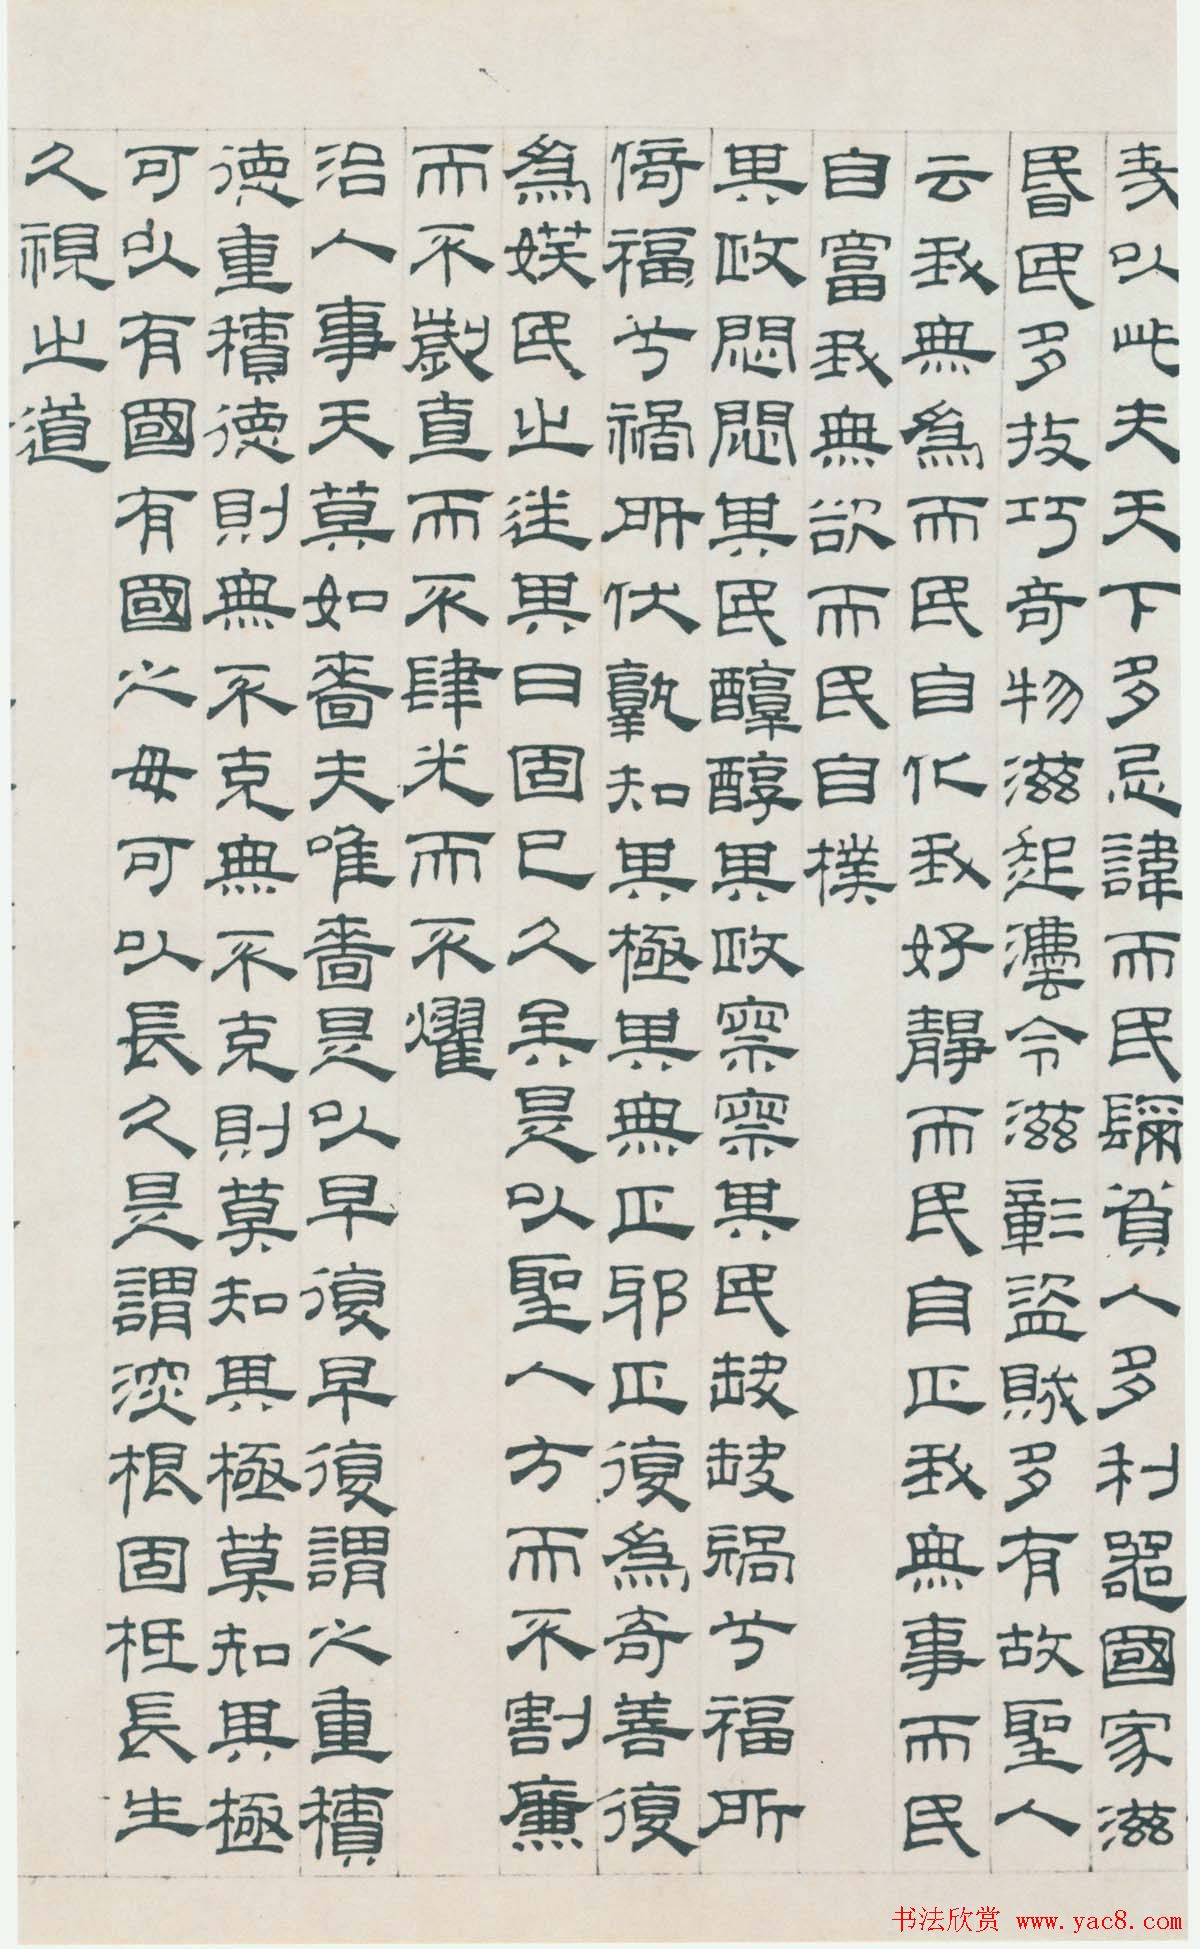 哉以此夫天下多忌諱而民彌貧人多利器國家滋
昏民多技巧奇物滋起法令滋彰盜賊多有故聖人
云我無為而民自化我好靜而民自正我無事而民
自富我無欲而民自樸
其政悶悶其民醇醇其政察察其民缺缺禍兮福所
倚福兮禍所伏孰知其極其無正邪正復為奇善復
為訞民之迷其日固已久矣是以聖人方而不割廉
而不劌直而不肆光而不耀
治人事天莫如嗇夫唯嗇是以早復早復謂之重積
德重積德則無不克無不克則莫知其極莫知其極
可以有國有國之母可以長久是謂深根固柢長生
久視之道
书法欣赏 www.yac8.com